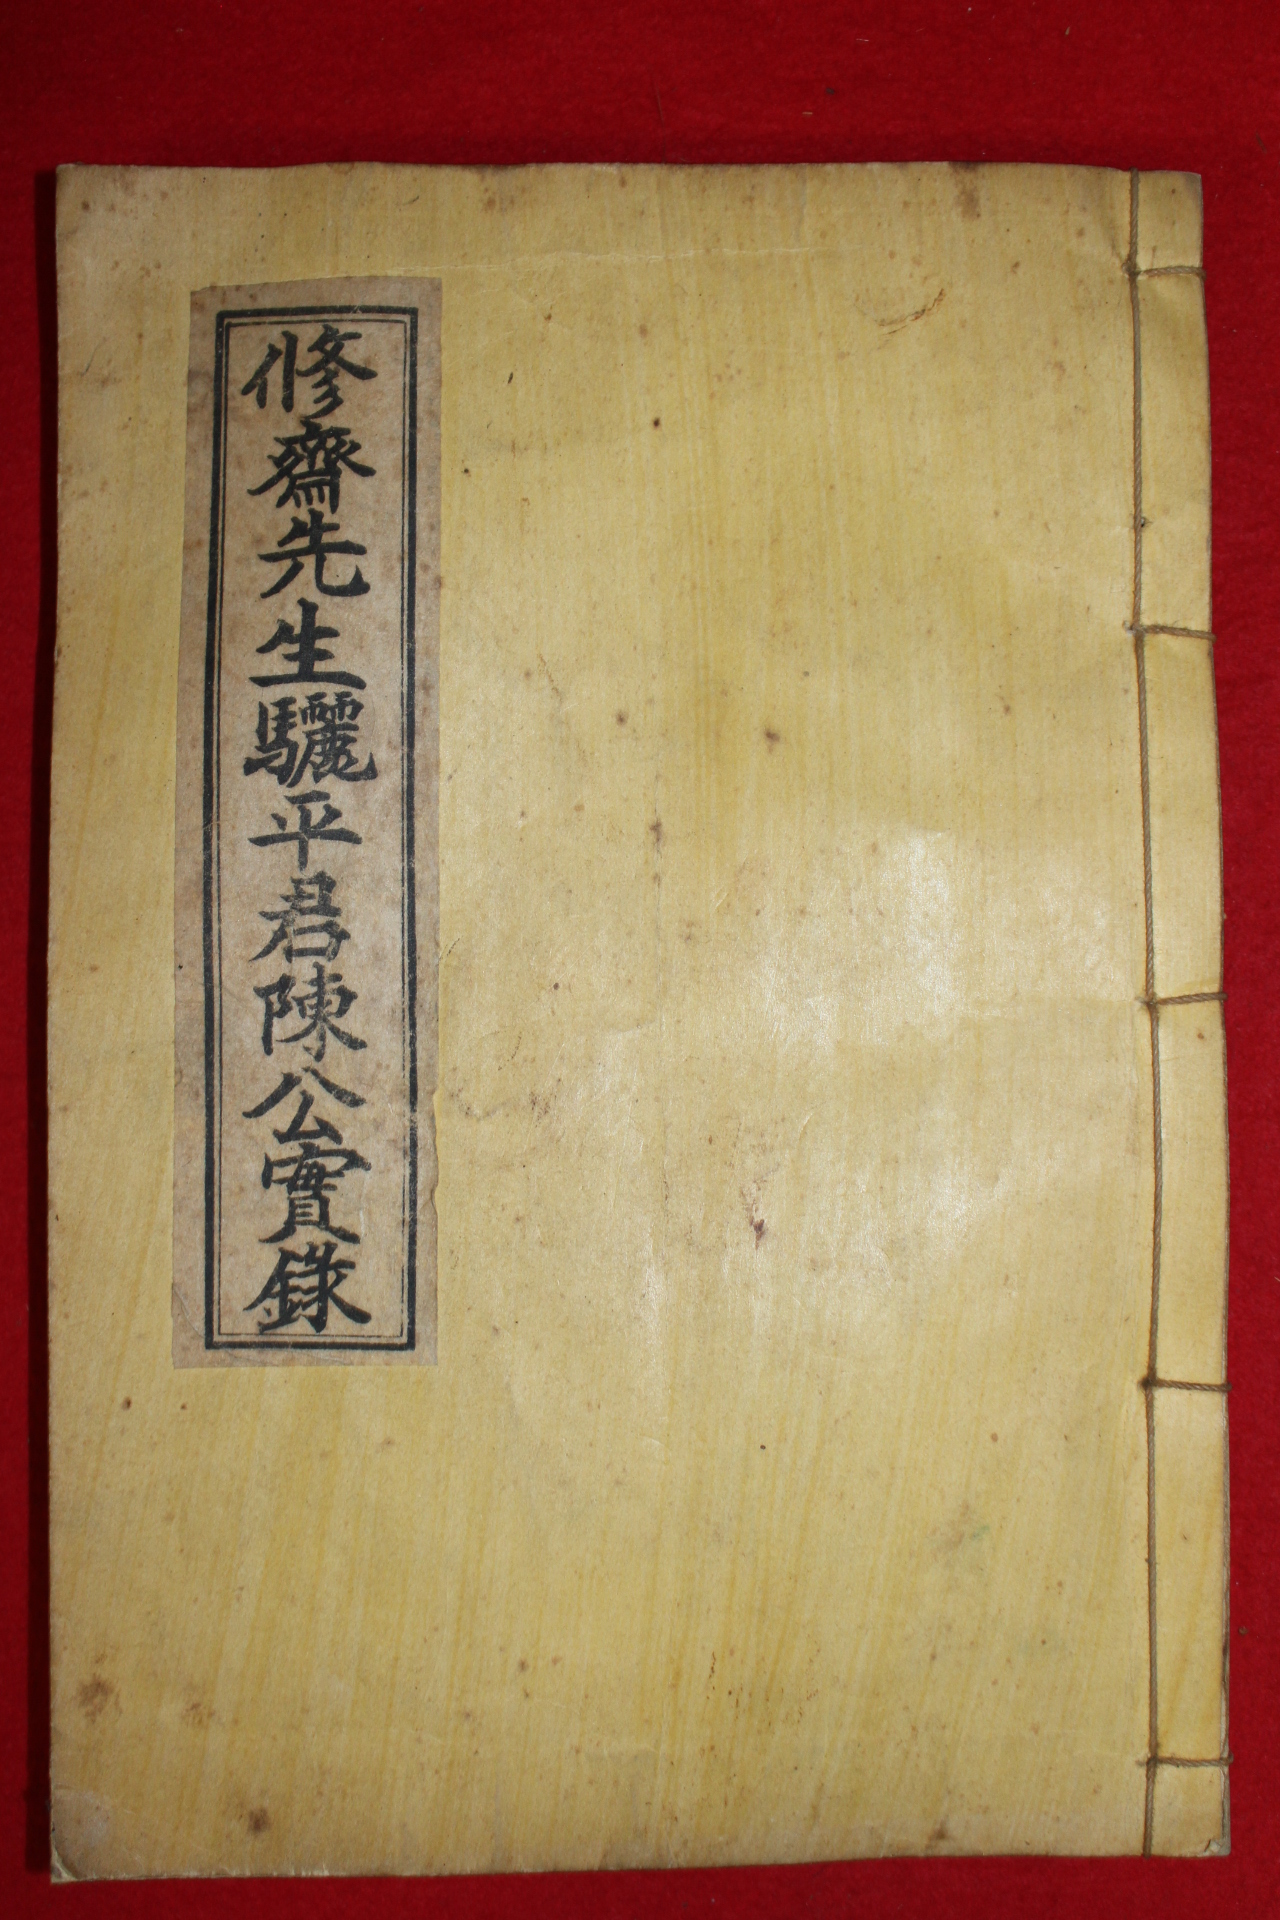 修齋先生驪平君陳公實錄